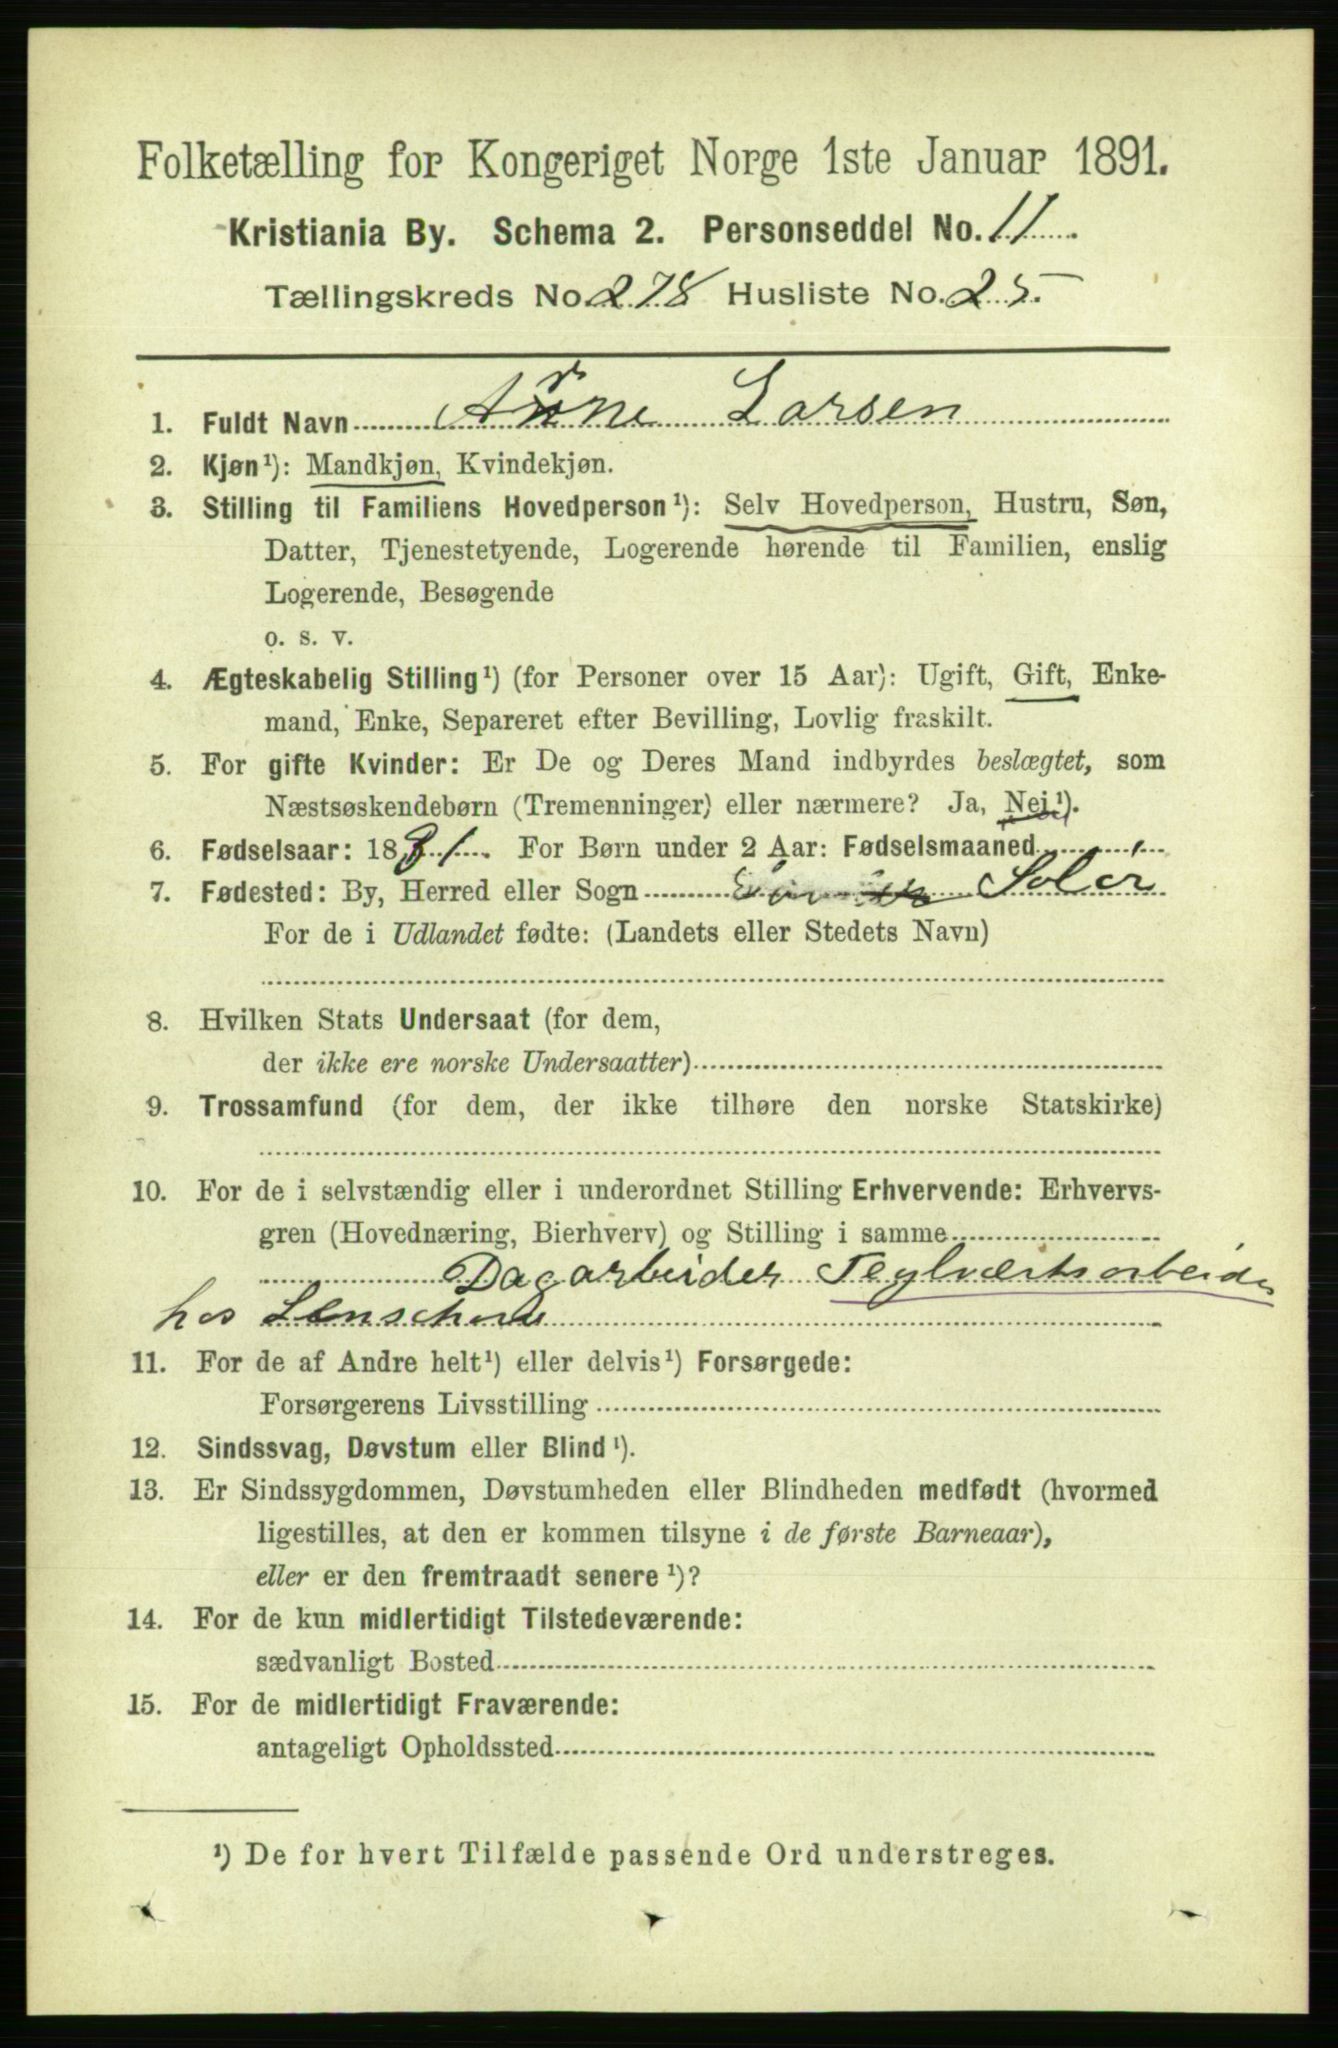 Folketælling for Kongeriget Norge 1ste Januar 1891.
Kristiania By. Schema 2. Personseddel No. 11
Tællingskreds No. 278 Husliste No. 25
1. Fuldt Navn Arne Larsen
2. Kjøn¹): Mandkjøn, Kvindekjøn.
3. Stilling til Familiens Hovedperson¹): Selv Hovedperson, Hustru, Søn,
Datter, Tjenestetyende, Logerende hørende til Familien, enslig
Logerende, Besøgende
o. s. v.
4. Ægteskabelig Stilling¹) (for Personer over 15 Aar): Ugift, Gift, Enke-
mand, Enke, Separeret efter Bevilling, Lovlig fraskilt.
5. For gifte Kvinder: Er De og Deres Mand indbyrdes beslægtet, som
Næstsøskendebørn (Tremenninger) eller nærmere? Ja, Nei¹).
6. Fødselsaar: 1831. For Børn under 2 Aar: Fødselsmaaned
7. Fødested: By, Herred eller Sogn Solør
For de i Udlandet fødte: (Landets eller Stedets Navn)
8. Hvilken Stats Undersaat (for dem,
der ikke ere norske Undersaatter)
9. Trossamfund (for dem, der ikke tilhøre den norske Statskirke)
10. For de i selvstændig eller i underordnet Stilling Erhvervende: Erhvervs-
gren (Hovednæring, Bierhverv) og Stilling i samme
Dagarbeider Teglværksarbeider
hos
11. For de af Andre helt¹) eller delvis¹) Forsørgede:
Forsørgerens Livsstilling
12. Sindssvag, Døvstum eller Blind¹).
13. Er Sindssygdommen, Døvstumheden eller Blindheden medfødt (hvormed
ligestilles, at den er kommen tilsyne i de første Barneaar),
eller er den fremtraadt senere¹)?
14. For de kun midlertidigt Tilstedeværende:
sædvanligt Bosted
15. For de midlertidigt Fraværende:
antageligt Opholdssted
¹) De for hvert Tilfælde passende Ord understreges.